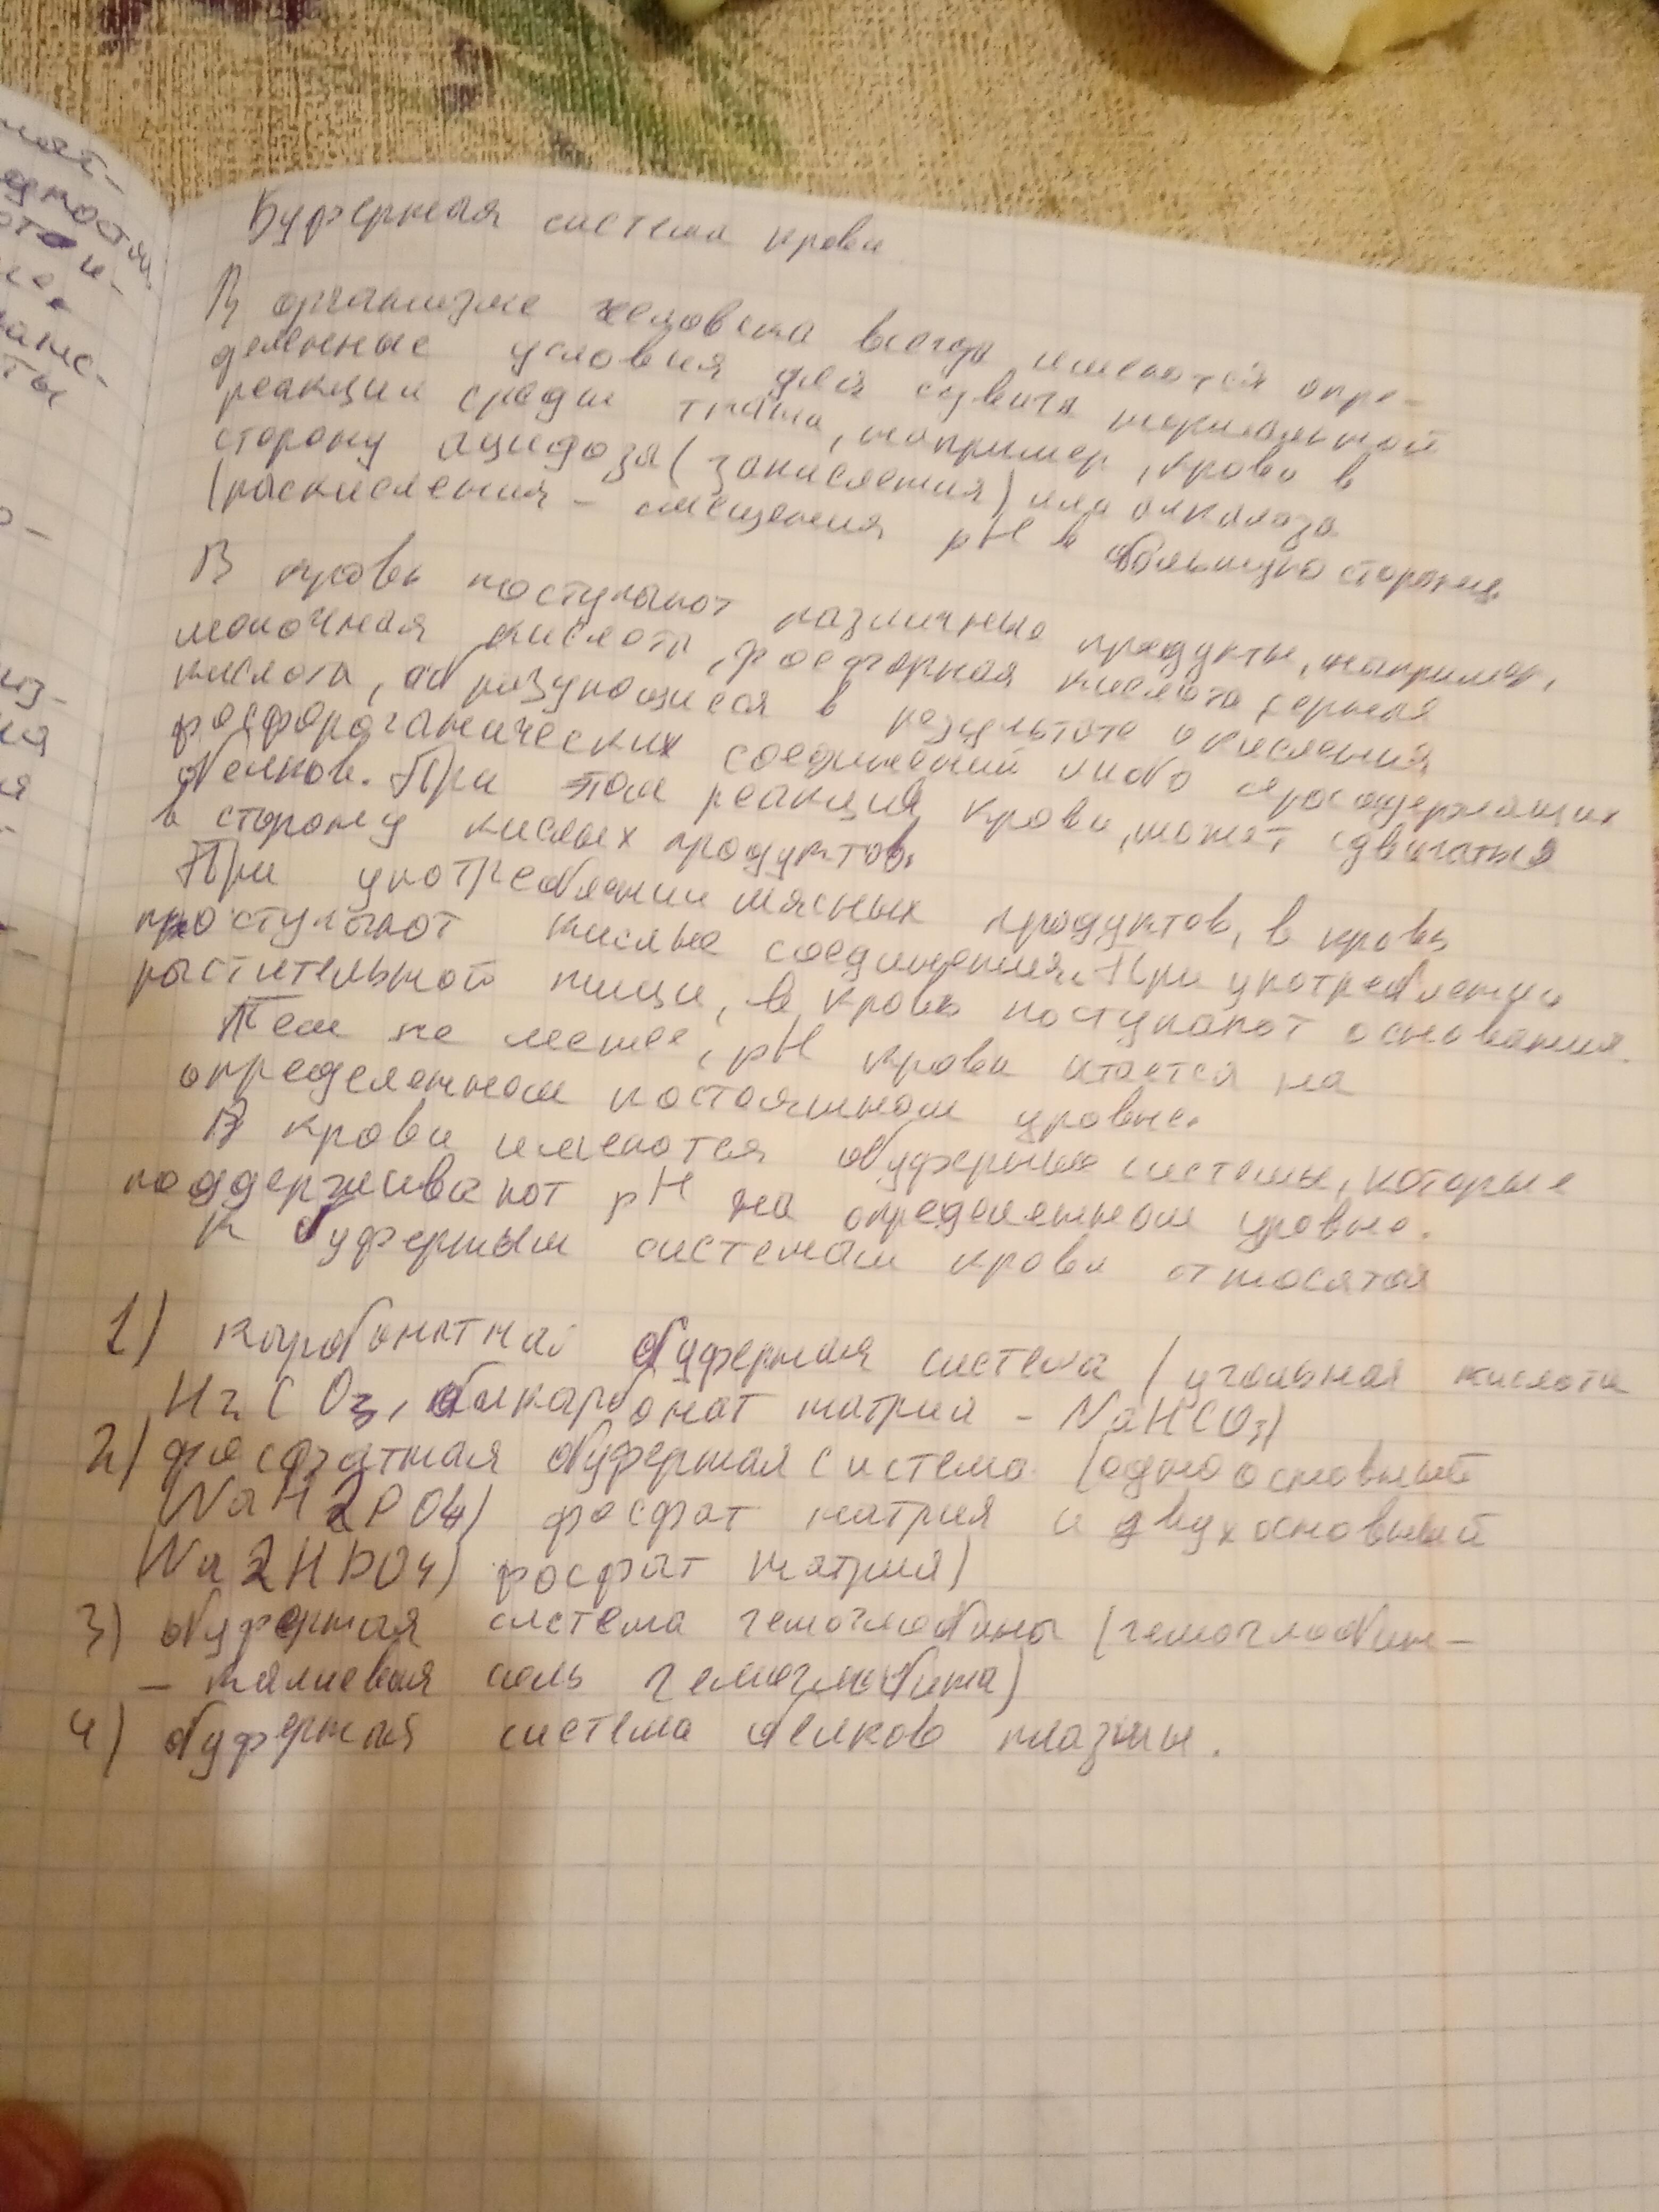 Буферная система крови
В организме человека всегда имеются опре-
деленные условия для сдвига нормальной
реакции среды ткани, например, крови в
сторону ацидоза (закисления) или алкалоза
(раскисления - смещения pH в большую сторону.
В кровь поступают различные продукты, например,
молочная кислота, фосфорная кислота серная
кислота, образующиеся в результате окисления
фосфорорганических соединений либо серосодержащих
белков. При этом реакция крови, может сдвигаться
в сторону кислых продуктов.
При употреблении мясных продуктов, в кровь
поступают кислые соединения. При употреблении
растительной пищи, в кровь поступают основания.
Тем не менее, pH крови на
определенном постоянном уровне.
В крови имеются буферные системы, которые
поддерживают pH на определенном уровне.
К буферным системам крови относятся
1) Карбонатная буферная система (угольная кислота
H2CO3, бикарбонат натрия - NaHCO3)
2) фосфатная буферная система (одноосновный
NaH2PO4) фосфат натрия и двухосновный
(Na2HPO4) фосфат натрия)
3) буферная система гемоглобина (гемоглобин-
- калиевая соль гемоглобина)
4) буферная система белков плазмы.